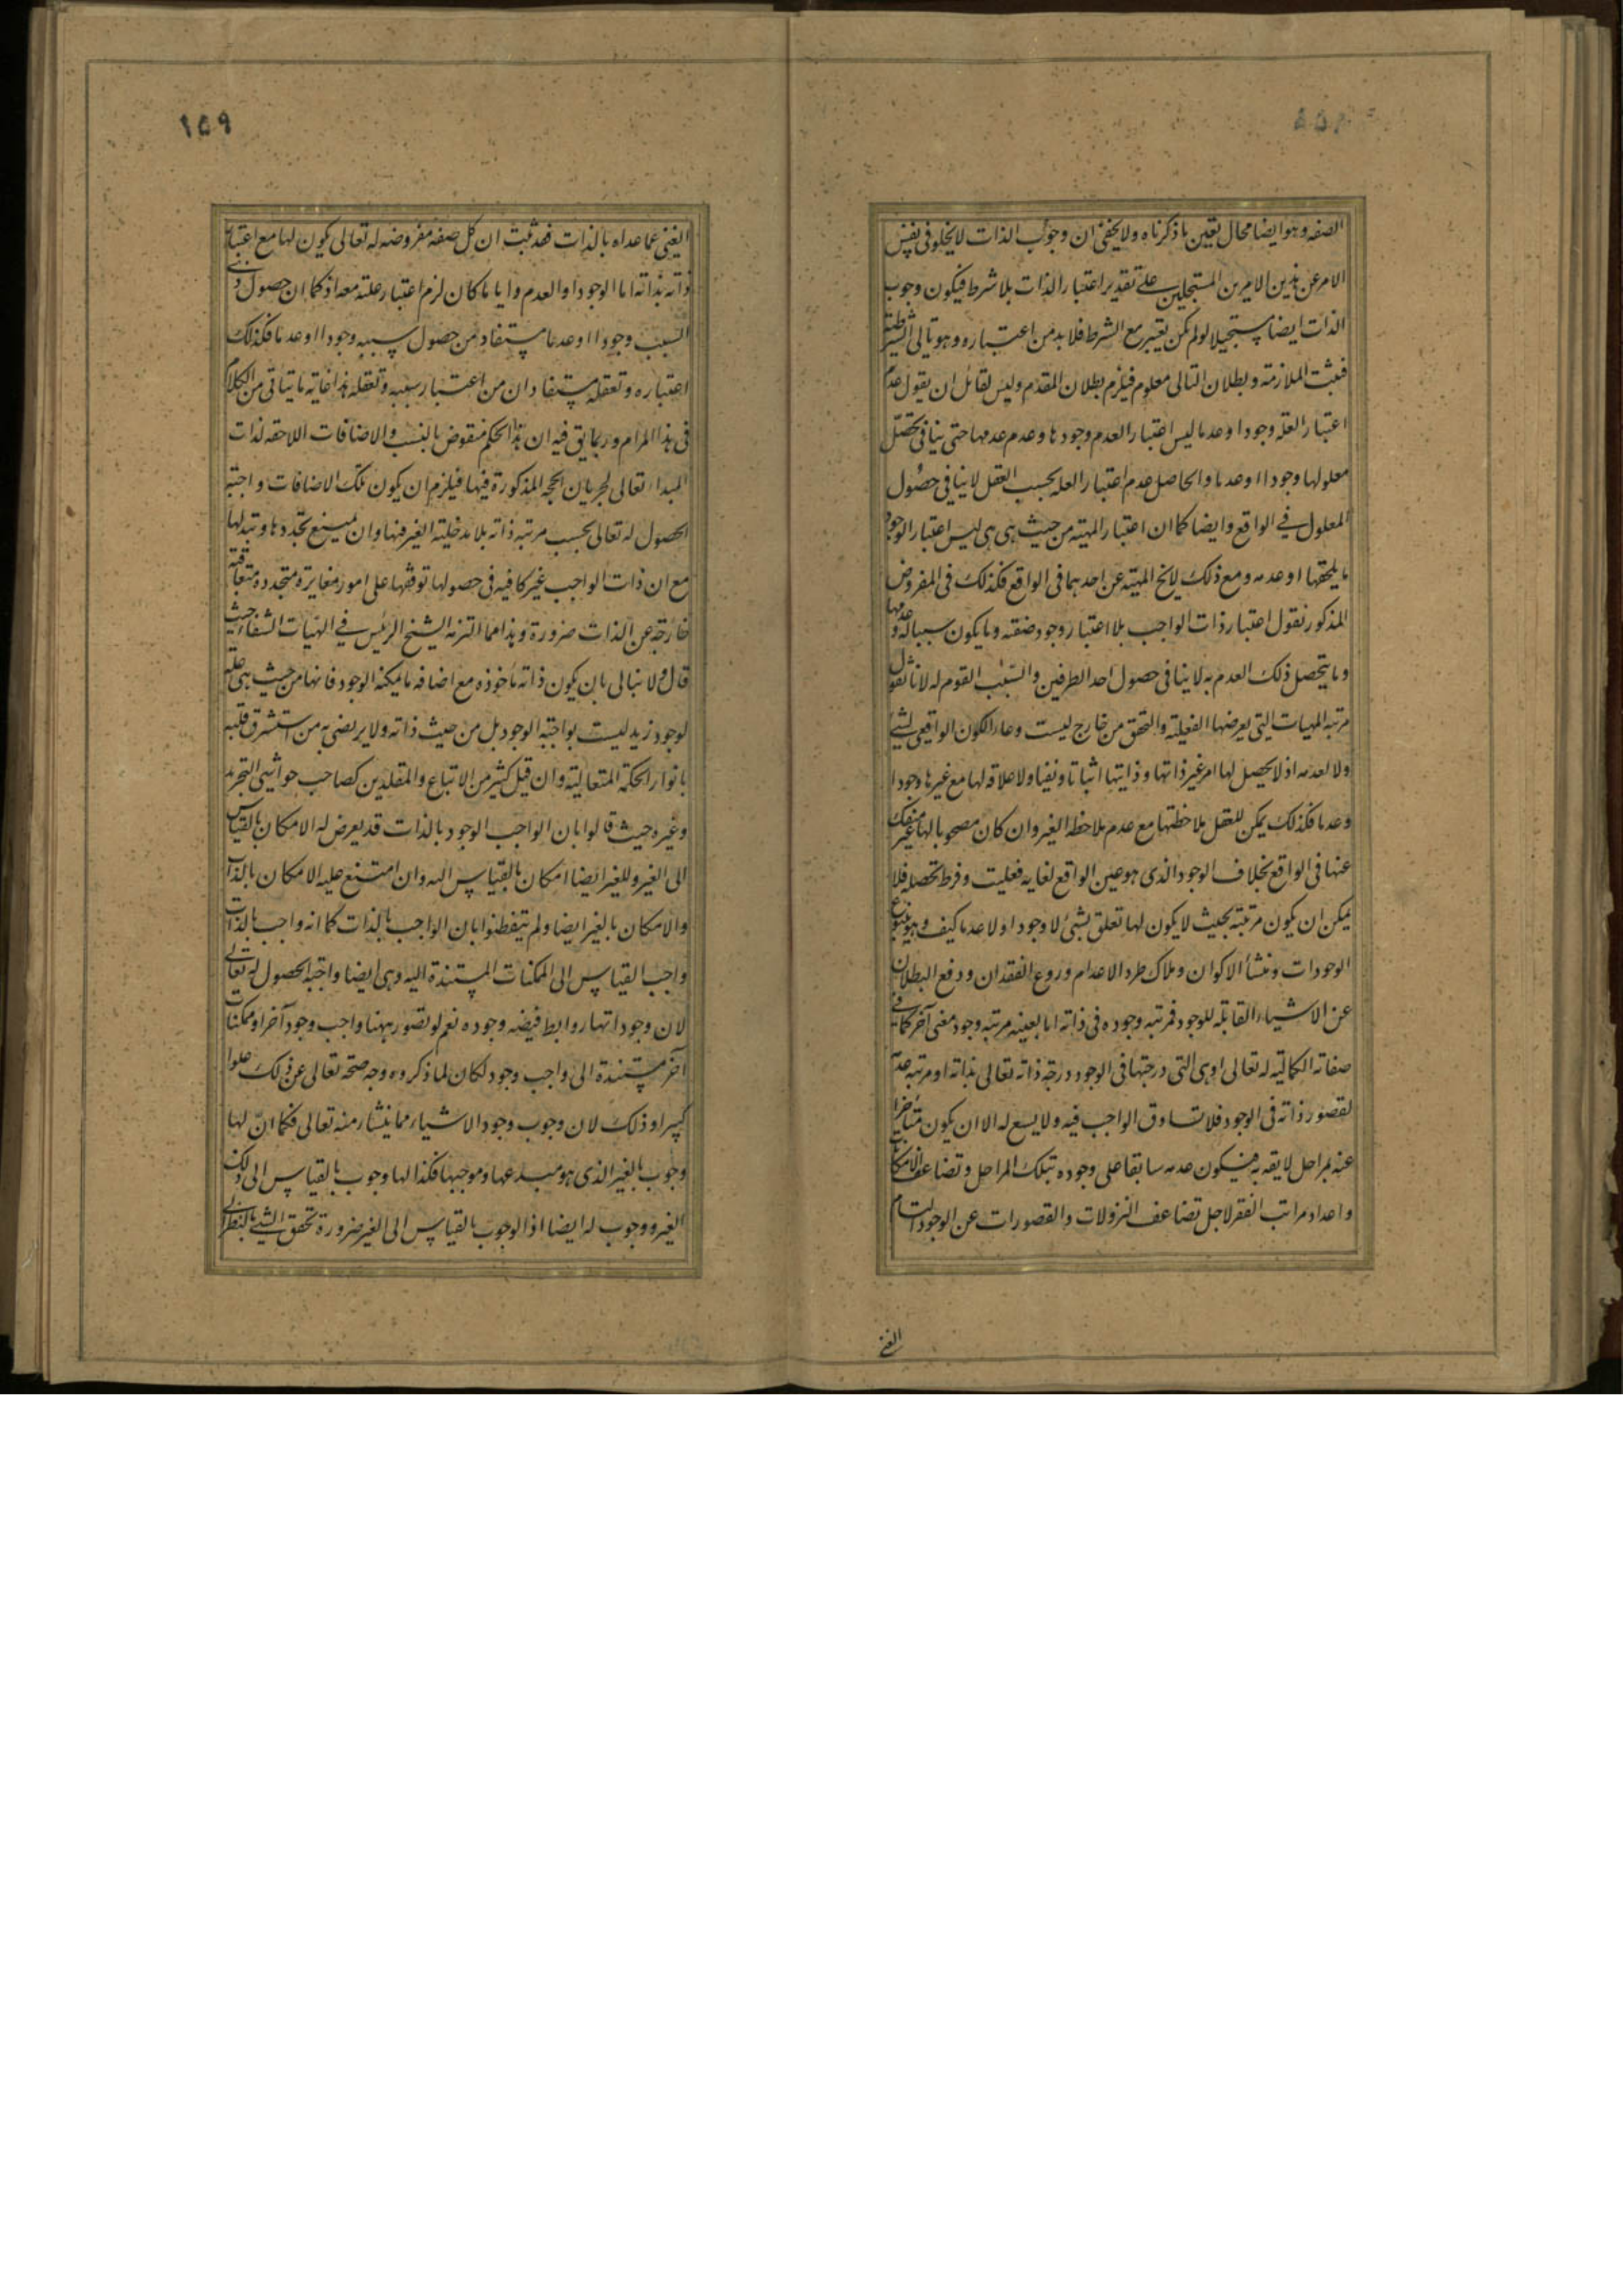 الصفه وهو ايضا محال بعين ما ذكرناه ولا يخفى ان وجوب الذات لا يخلو فى نفس
الامر عن هذين الامرين المستحيلين على تقدير اعتبار الذات بلا شرط فيكون وجوب
الذات ايضا مستحيلا لو لم يكن يعتبر مع الشرط فلا بد من اعتباره وهو تالى الشرطية
فثبت الملازمة وبطلان التالى معلوم فيلزم بطلان المقدم وليس لقائل ان يقول عدم
اعتبار العله وجودا وعدما ليس اعتبار العدم وجودها وعدم عدمها حتى ينافى تحصل
معلولها وجودا او عدما والحاصل عدم اعتبار العله بحسب العقل لا ينافى حصول
المعلول فى الواقع وايضا كما ان اعتبار المهية من حيث هى هى ليس اعتبار الوجود
ما يلحقها او عدمه ومع ذلك لا يخ المهية عن احدهما فى الواقع فكذلك فى المفروض
المذكور نقول اعتبار ذات الواجب بلا اعتبار وجود صفته وما يكون سببا له وعدمها
وما يتحصل ذلك العدم به لا ينافى حصول احد الطرفين والسبب القوم له لانا نقول
مرتبه المهيات التى يعرضها الفعلية والتحقق من خارج ليست وعاء للكون الواقعى لشئ
ولا لعدمه اذ لا يحصل لها امر غير ذاتها وذاتيتها اثباتا ونفيا ولا علاقه لها مع غيرها وجودا
وعدما فكذلك يمكن للعقل ملاحظتها مع عدم ملاحظه الغير وان كان مصحوبا لها غير منفك
عنها فى الواقع بخلاف الوجود الذى هو عين الواقع لغايه فعليت وفرط تحصله فلا
يمكن ان يكون مرتبته بحيث لا يكون لها تعلق بشئ لا وجودا ولا عدما كيف وهو ينبوع
الوجودات ومنشأ الاكوان وملاك طرد الاعدام وروع الفقدان ودفع البطلان
عن الاشياء القابله للوجود فمرتبه وجوده فى ذاته اما بعينه مرتبه وجود معنى آخر كما فى
صفاته الكماليه له تعالى او هى التى درجتها فى الوجود درجه ذاته تعالى بذاته او مرتبه عدمه
لقصور ذاته فى الوجود فلا تساوق الواجب فيه ولا يسع له الا ان يكون متأخرا
عنه بمراحل لايقه به فيكون عدمه سابقا على وجوده بتلك المراحل وتضاعف الامكانات
واعداد مراتب الفقر لاجل تضاعف النزولات والقصورات عن الوجود التام
الغنى
١٥٩
الغنى عما عداه بالذات فقد ثبت ان كل صفه مفروضه له تعالى يكون لها مع اعتبار
ذاته بذاته اما الوجود او العدم وايا ما كان لزم اعتبار علته معه اذ كما ان حصول ذى
السبب وجودا او عدما مستفاد من حصول سببه وجودا او عدما فكذلك
اعتباره وتعقله مستفادان من اعتبار سببه وتعقله هذا غايه ما يتاتى من الكلام
فى هذا المرام وربما يق فيه ان هذا الحكم منقوض بالنسب والاضافات اللاحقه لذات
المبداء تعالى لجريان الحجه المذكورة فيها فيلزم ان يكون تلك الاضافات واجبة
الحصول له تعالى بحسب مرتبه ذاته بلا مدخليه الغير فيها وان يمتنع تجددها وتبدلها
مع ان ذات الواجب غير كافيه فى حصولها لتوقفها على امور مغايرة متجددة متعاقبة
خارجة عن الذات ضرورة وهذا مما التزمه الشيخ الرئيس فى الهيات الشفاء حيث
قال ولا نبالى بان يكون ذاته مأخوذه مع اضافه ما يمكنه الوجود فانها من حيث هى عله
لوجود زيد ليست بواجبة الوجود بل من حيث ذاته ولا يرتضى به من استشرق قلبه
بانوار الحكمة المتعالية وان قيل كثير من الاتباع والمقلدين كصاحب حواشى التجريد
وغيره حيث قالوا بان الواجب الوجود بالذات قد يعرض له الامكان بالقياس
الى الغير وللغير ايضا امكان بالقياس اليه وان امتنع عليه الامكان بالذات
والامكان بالغير ايضا ولم يتفطنوا بان الواجب بالذات كما انه واجب بالذات
واجب القياس الى الممكنات المستندة اليه وهى ايضا واجبه الحصول له تعالى
لان وجوداتها روابط فيضه وجوده نعم لو تصور ههنا واجب وجود آخر او ممكنات
آخر مستندة الى واجب وجود لكان لما ذكروه وجه صحه تعالى عن ذلك علوا
كبيرا وذلك لان وجوب وجود الاشياء مما ينشاء منه تعالى فكما ان لها
وجوب بالغير الذى هو مبدعها وموجبها فكذا لها وجوب بالقياس الى ذلك
الغير ووجوب له ايضا اذ الوجوب بالقياس الى الغير ضرورة تحقق الشئ بالنظر الى